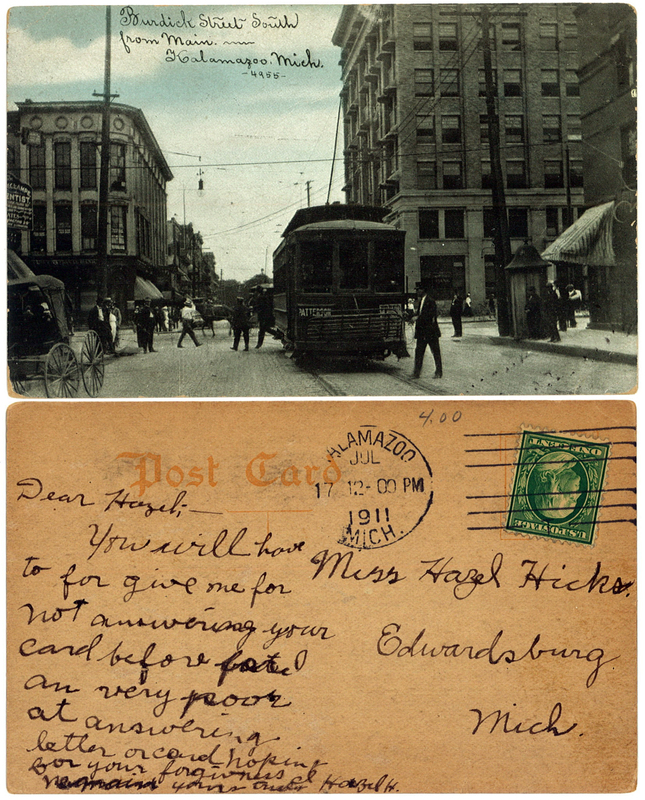 Burdick Street South
from Main.
Kalamazoo, Mich.
-4955-
ENTIST
PATTERSON
4.00
Post Card
KALAMAZOO
JUL
17 12-00 PM
1911
MICH.
U.S. POSTAGE
ONE CENT
Dear Hazel;-
You will have
to for give me for
not answering your
card before
an very poor
at answering
letter or card hoping
for your forgivness
remain yours Hazel H.
Miss Hazel Hicks.
Edwardsburg
Mich.